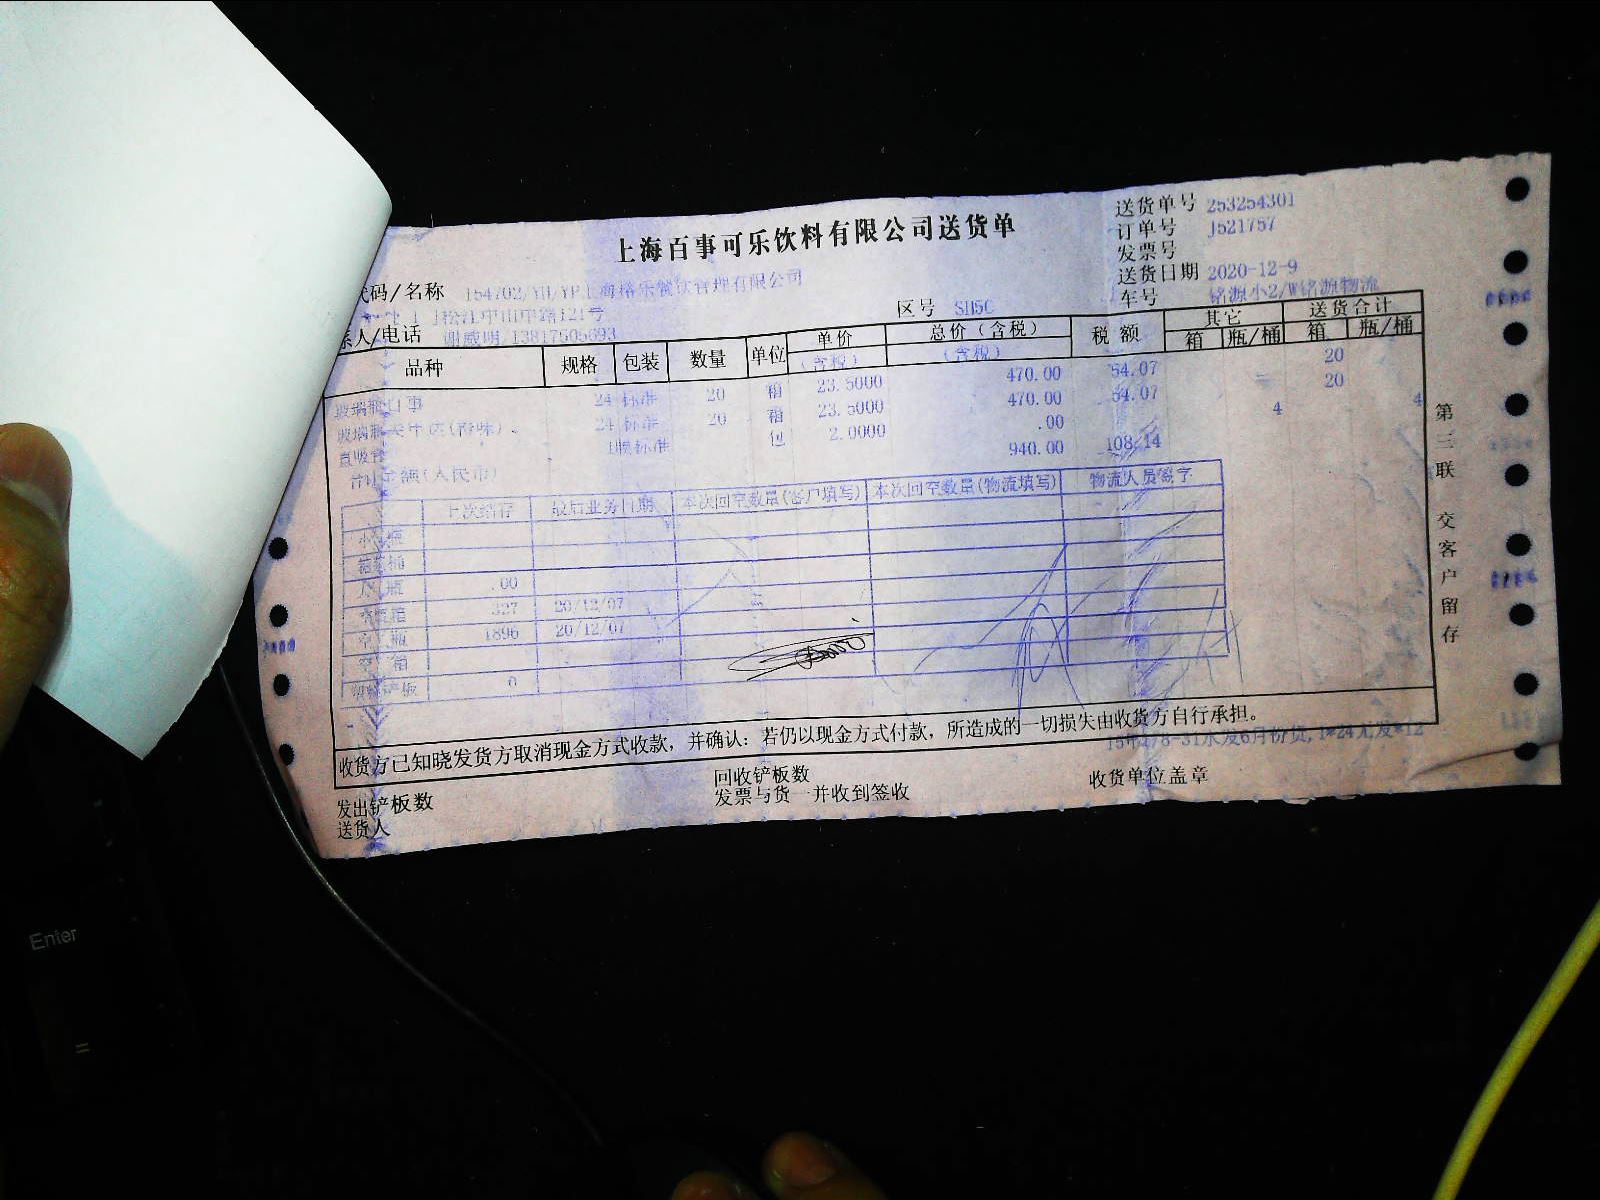 上海百事可乐饮料有限公司送货单
送货单号 253254301
订单号 J521757
发票号
送货日期 2020-12-9
车号 铭源小2/W铭源物流
代码/名称 154702/YH/YP上海格乐餐饮管理有限公司
松江中山中路121号
区号 SH5C
系人/电话 谢威明 13817505693
品种 规格 包装 数量 单位 单价 总价(含税) 税额 其它 送货合计
(含税) (含税) 箱 瓶/桶 箱 瓶/桶
玻璃瓶百事 24 标准 20 箱 23.5000 470.00 54.07 20
24 标准 20 箱 23.5000 470.00 54.07 20
直吸管 标准 包 2.0000 .00 4 4
合计金额(人民币) 940.00 108.14
上次结存 最后业务日期 本次回空数量(客户填写) 本次回空数量(物流填写) 物流人员签字
.00
327 20/12/07
1896 20/12/07
0
收货方已知晓发货方取消现金方式收款，并确认：若仍以现金方式付款，所造成的一切损失由收货方自行承担。
发出铲板数 回收铲板数 收货单位盖章
送货人 发票与货一并收到签收
第三联 交客户留存
Enter
=